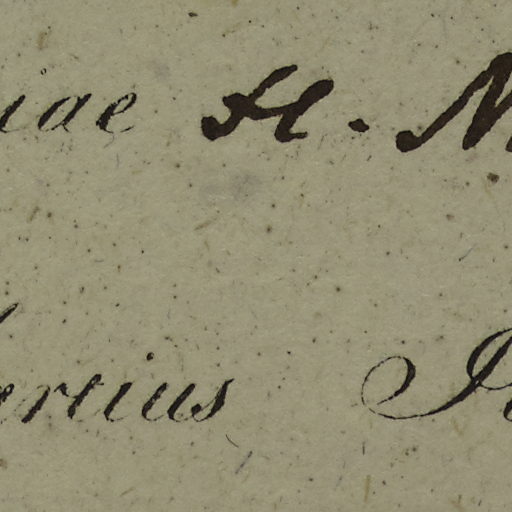 iae H. N
ertius